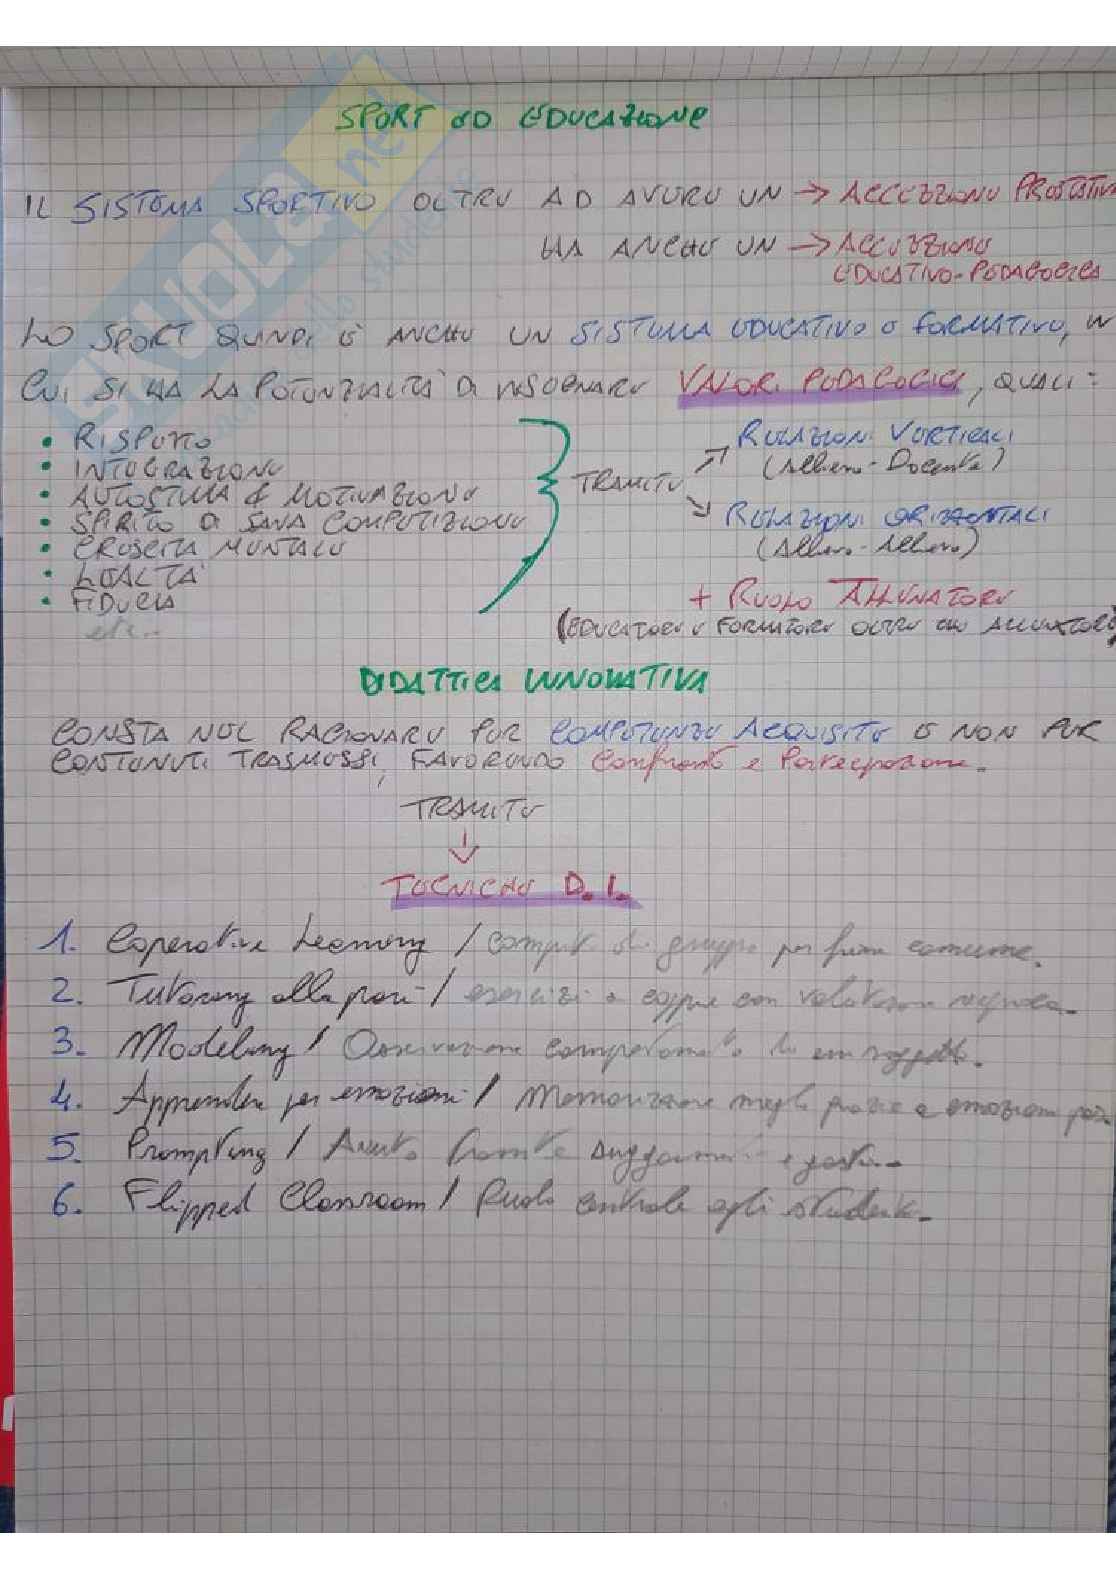 SPORT ED EDUCAZIONE
IL SISTEMA SPORTIVO OLTRE AD AVERE UN → ACCEZIONE PRESTATIVA
HA ANCHE UN → ACCEZIONE
EDUCATIVO-PEDAGOGICA
LO SPORT QUINDI È ANCHE UN SISTEMA EDUCATIVO E FORMATIVO, IN
CUI SI HA LA POTENZIALITÀ DI INSEGNARE VALORI PEDAGOGICI, QUALI:
• RISPETTO
• INTEGRAZIONE
• AUTOSTIMA & MOTIVAZIONE
• SPIRITO DI SANA COMPETIZIONE
• CRESCITA MENTALE
• LEALTÀ
• FIDUCIA
etc..
TRAMITE
RELAZIONI VERTICALI
(Allievo-Docente)
RELAZIONI ORIZZONTALI
(Allievo-Allievo)
+ RUOLO ALLENATORE
(EDUCATORE E FORMATORE OLTRE CHE ALLENATORE)
DIDATTICA INNOVATIVA
CONSTA NEL RAGIONARE PER COMPETENZE ACQUISITE E NON PER
CONTENUTI TRASMESSI, FAVORENDO Confronto e Partecipazione.
TRAMITE
↓
TECNICHE D.I.
1. Coperative Learning / compiti di gruppo per fine comune.
2. Tutoring alla pari / esercizi a coppie con valutazione reciproca.
3. Modeling / Osservazione comportamento di un soggetto.
4. Apprendere per emozioni / Memorizzare meglio grazie a emozioni
5. Prompting / Aiuto tramite suggerimenti e gesti..
6. Flipped Classroom / Ruolo centrale agli studenti.
SKUOLA.net